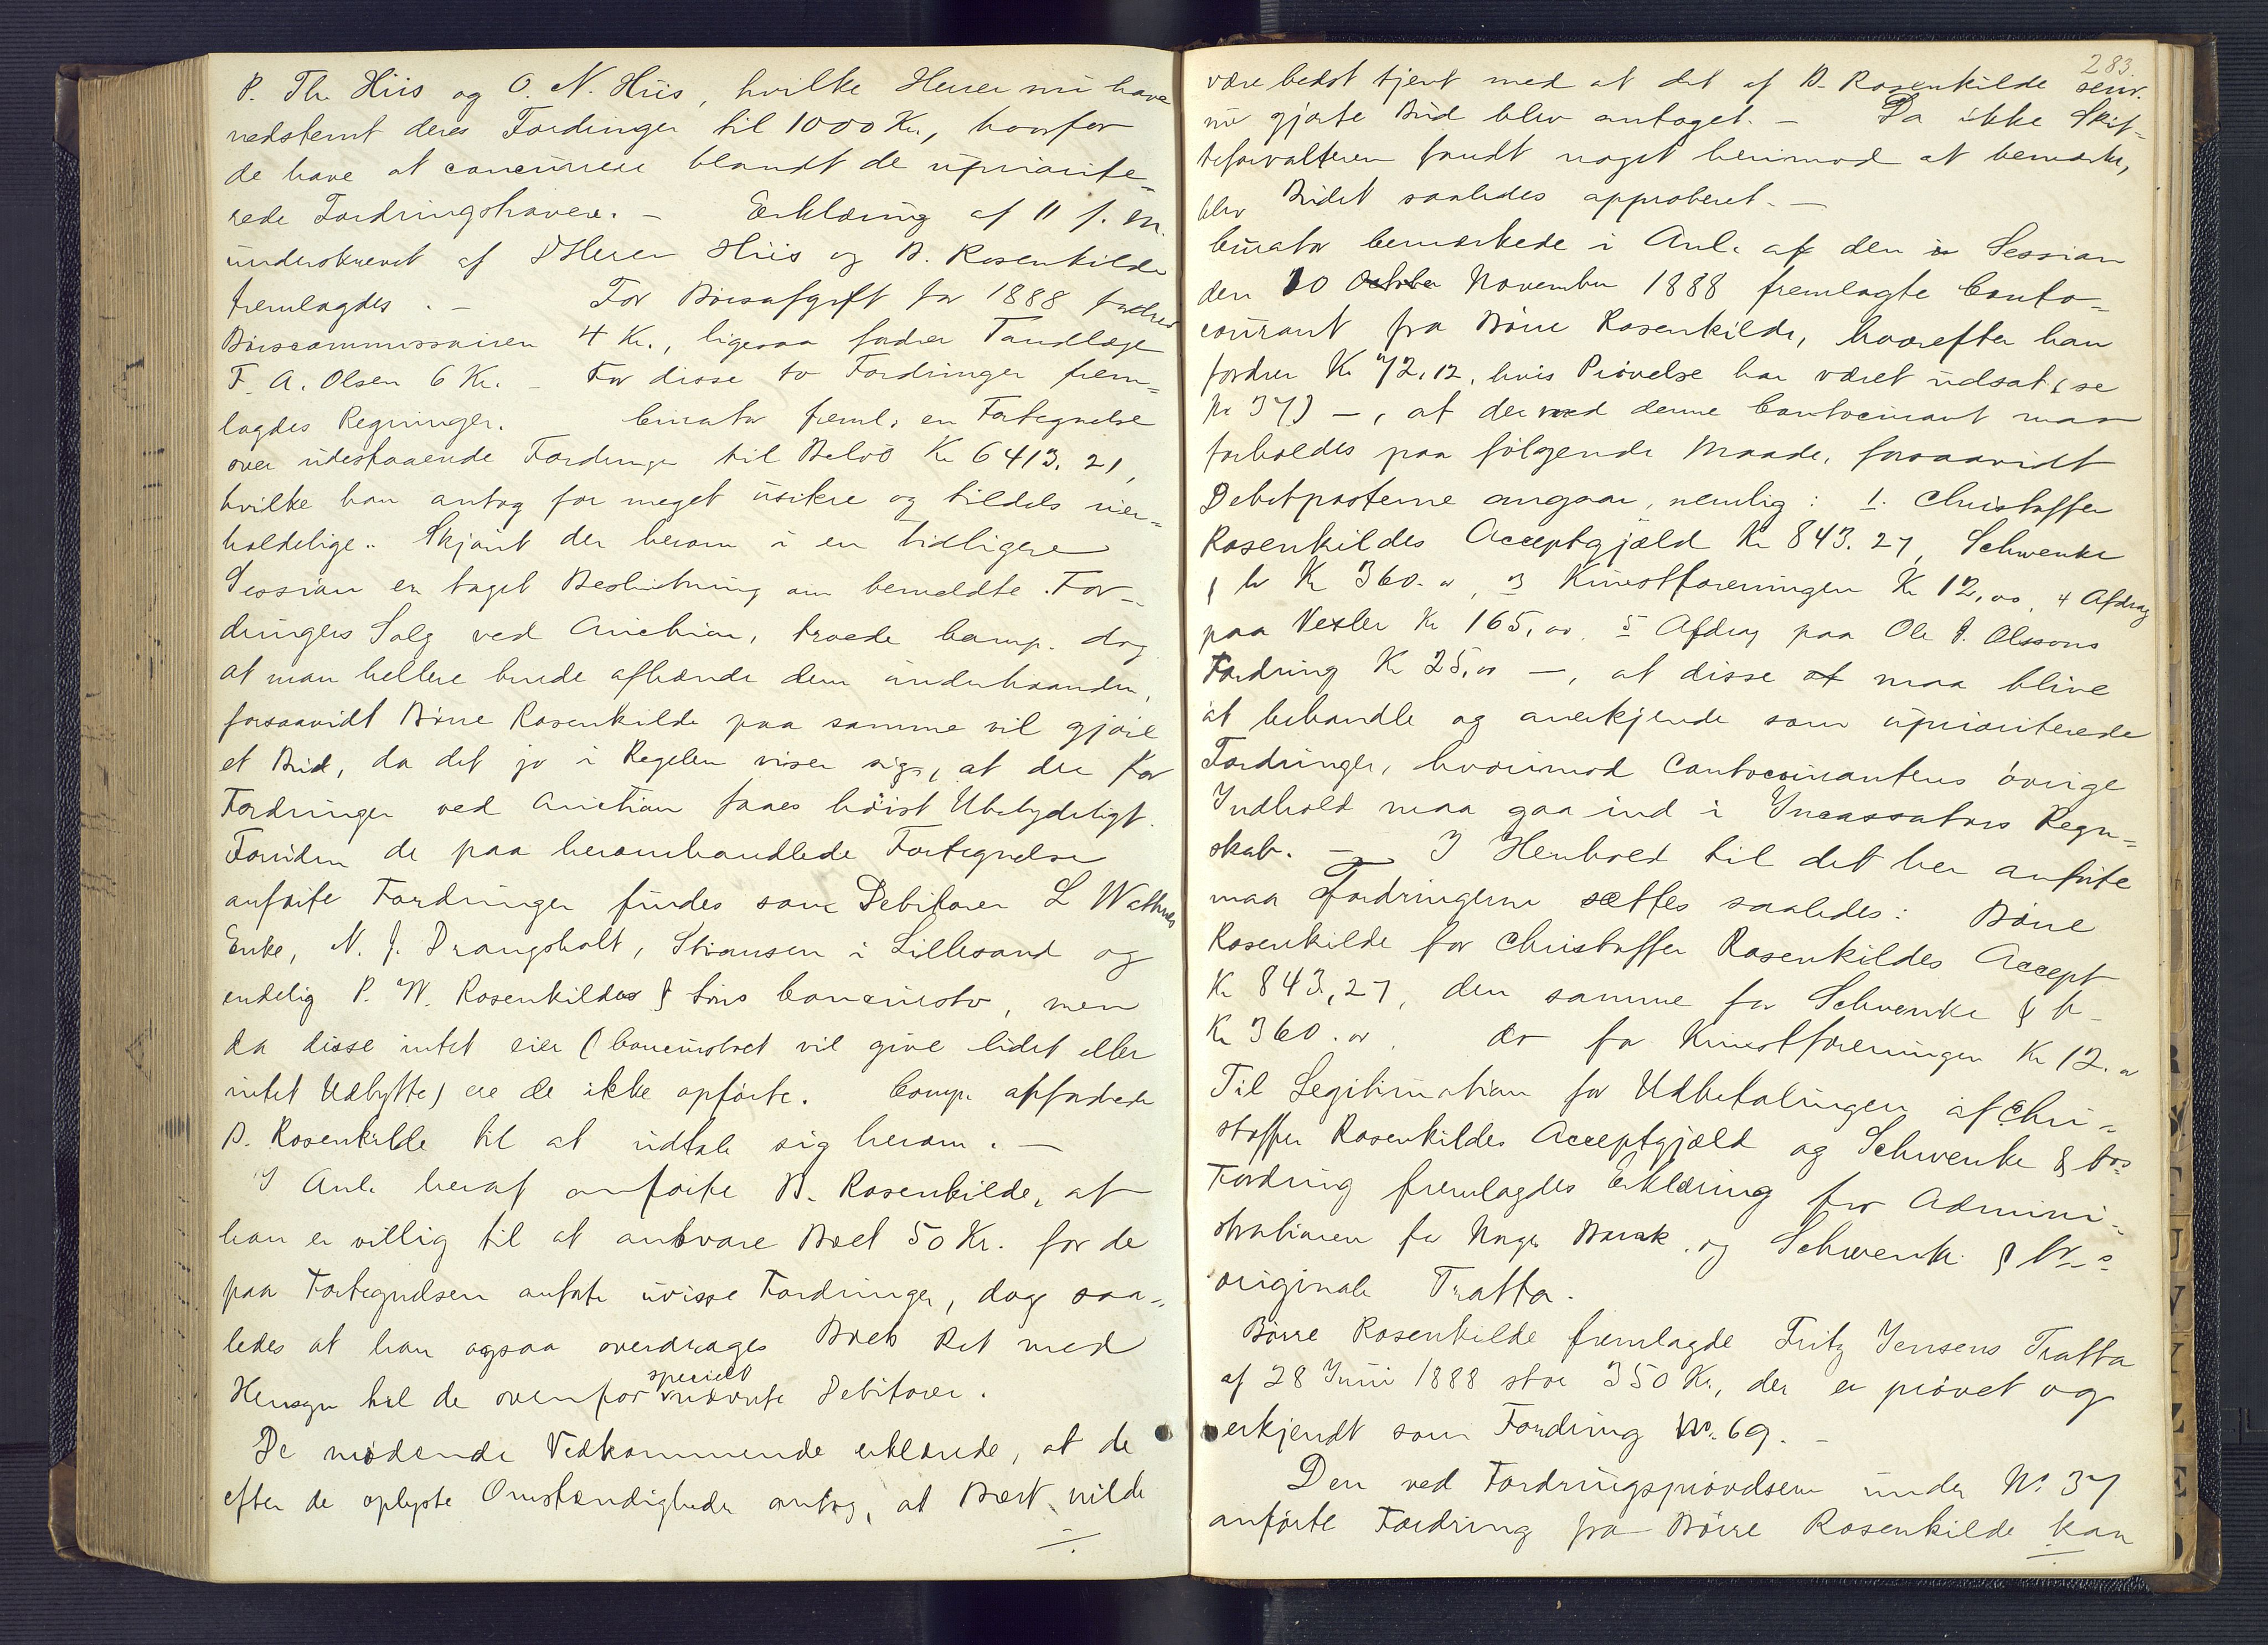 P. Th. Hiis og O. N. Hiis, hvilke Herrer nu have
nedstemt deres Fordringer til 1000 Kr., hvorfor
de have at concurrere blandt de upriorite-
rede Fordringshavere. – Erklæring af 11 f. M.
underskrevet af DHerrer Hiis og B. Rosenkilde
fremlagdes. – For Børsafgift for 1888 fordrer
Børscommissairen 4 Kr., ligesaa fordrer Tandlæge
F. A. Olsen 6 Kr. – For disse to Fordringer frem-
lagdes Regninger. Curator freml. en Fortegnelse
over udestaaende Fordringer til Beløb Kr 6413.21,
hvilke han antog for meget usikre og tildels uer-
holdelige. Skjønt der herom i en tidligere
Session er taget Beslutning om bemeldte For-
dringers Salg ved Auction, troede Comp. dog
at man hellere burde afhænde dem underhaanden,
forsaavidt Børre Rosenkilde paa samme vil gjøre
et Bud, da det jo i Regelen viser sig, at der for
Fordringer ved Auction faaes høist Ubetydeligt.
Foruden de paa heromhandlede Fortegnelse
anførte Fordringer findes som Debitorer L Wathnes
Enke, N. J. Drangsholt, Stransen i Lillesand og
endelig P. W. Rosenkildes & Søns Concursbo, men
da disse intet eier (Concursboet vil give lidet eller
intet Udbytte) ere de ikke opførte. Comp. opfordrede
B. Rosenkilde til at udtale sig herom. –
I Anl. heraf anførte B. Rosenkilde, at
han er villig til at ansvare Boet 50 Kr. for de
paa Fortegnelsen anførte uvisse Fordringer, dog saa-
ledes at han ogsaa overdrages Boets Ret med
specielt
Hensyn til de ovenfor nævnte Debitorer.
De mødende Vedkommende erklærede, at de
efter de oplyste Omstændigheder antog, at Boet vilde
283.
være bedst tjent med at det af B. Rosenkilde
nu gjorte Bud blev antaget. – Da ikke Skif-
teforvalteren fandt noget herimod at bemærke,
blev Budet saaledes approberet. –
Curator bemærkede i Anl. af den i Session
den 10 October November 1888 fremlagte Conto-
courant fra Børre Rosenkilde, hvorefter han
fordrer Kr 72,12, hvis Prøvelse har været udsat (se
No 37) –, at der med denne Contocourant maa
forholdes paa følgende Maade, forsaavidt
Debetposterne angaar, nemlig: 1. Christoffer
Rosenkildes Acceptgjæld Kr 843.27, Schwenke
& Co Kr 360.00, 3 Kunstforeningen Kr 12,00, 4 Afdrag
paa Vexler Kr 165,00, 5 Afdrag paa Ole J. Olssons
Fordring Kr 25,00 –, at disse at maa blive
at behandle og anerkjende som uprioriterede
Fordringer, hvorimod Contocourantens øvrige
Indhold maa gaa ind i Incassators Regn-
skab. – I Henhold til det her anførte
maa Fordringerne sættes saaledes: Børre
Rosenkilde for Christoffer Rosenkildes Accept
Kr 843,27, den samme for Schwenke & Co
Kr 360.00, do for Kunstforeningen Kr 12.00
Til Legitimation for Udbetalingen af Chri-
stoffer Rosenkildes Acceptgjæld og Schwenke & Cos
Fordring fremlagdes Erklæring fra Admini-
strationen for Norges Bank og Schwenke & Cos
originale Tratta.
Børre Rosenkilde fremlagde Fritz Jensens Tratta
af 28 Juni 1888 stor 350 Kr., der er prøvet og
erkjendt som Fordring No. 69. –
Den ved Fordringsprøvelsen under No 37
anførte Fordring fra Børre Rosenkilde kan